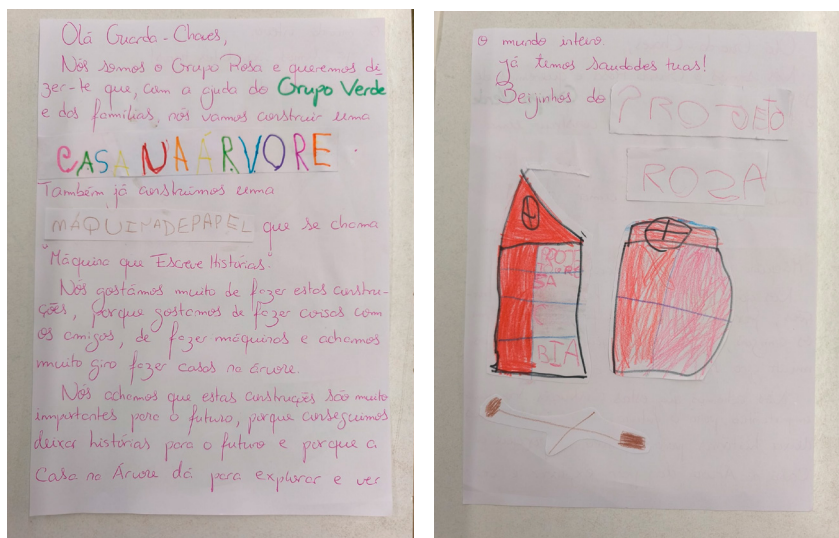 Olá Guarda-Chaves,
Nós somos o Grupo Rosa e queremos di
zer-te que, com a ajuda do Grupo Verde
e das famílias, nós vamos construir uma
CASA NA ÁRVORE.
Também já construímos uma
MÁQUINADEPAPEL que se chama
"Máquina que Escreve Histórias".
Nós gostámos muito de fazer estas constru-
ções, porque gostamos de fazer coisas com
os amigos, de fazer máquinas e achamos
muito giro fazer casas na árvore.
Nós achamos que estas construções são muito
importantes para o futuro, porque conseguimos
deixar histórias para o futuro e porque a
Casa na Árvore dá para explorar e ver
o mundo inteiro.
Já temos saudades tuas!
Beijinhos do PROJETO
ROZA
BIA